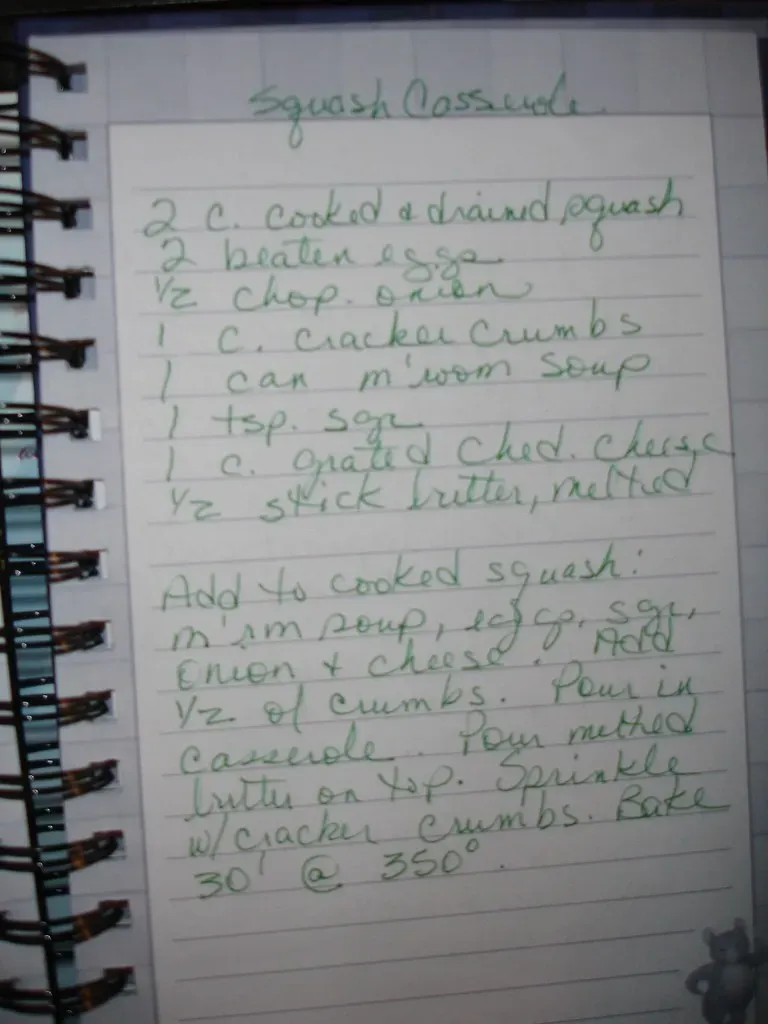 Squash Casserole
2 c. cooked & drained squash
2 beaten eggs
1/2 chop. onion
1 c. cracker crumbs
1 can m'room soup
1 tsp. sgr
1 c. grated ched. cheese
1/2 stick butter, melted
Add to cooked squash:
m'rm soup, eggs, sgr,
onion + cheese. Add
1/2 of crumbs. Pour in
casserole. Pour melted
butter on top. Sprinkle
w/cracker crumbs. Bake
30' @ 350°.